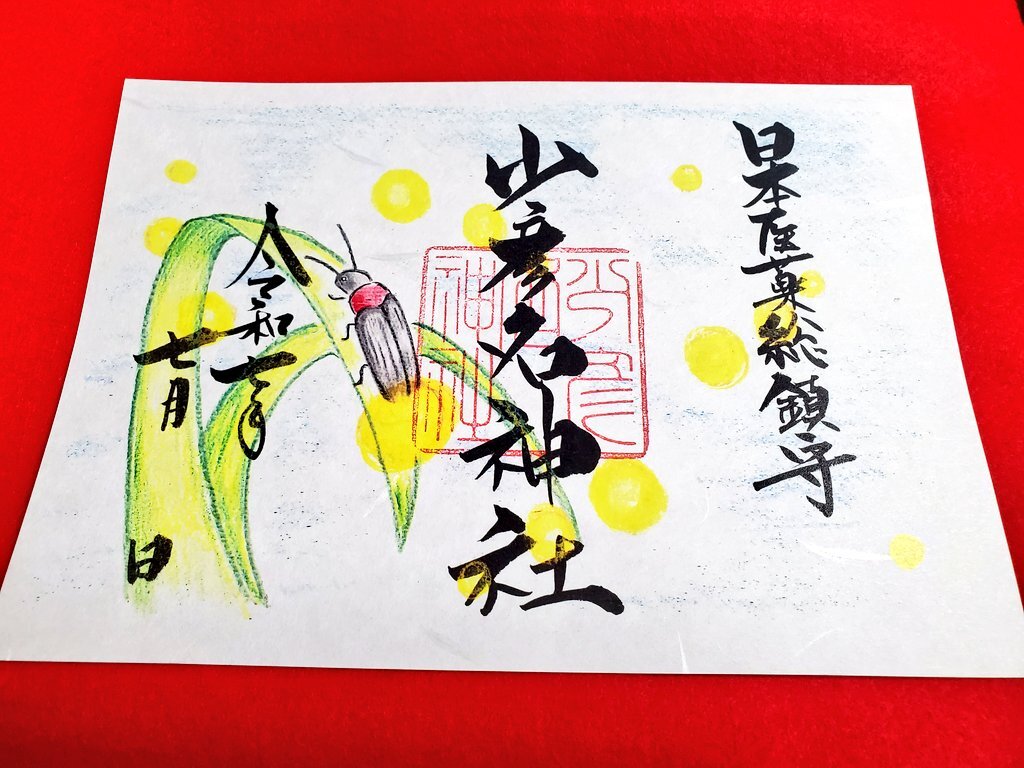 日本医薬総鎮守
少彦名神社
少彦名神社
令和六年
七月
日